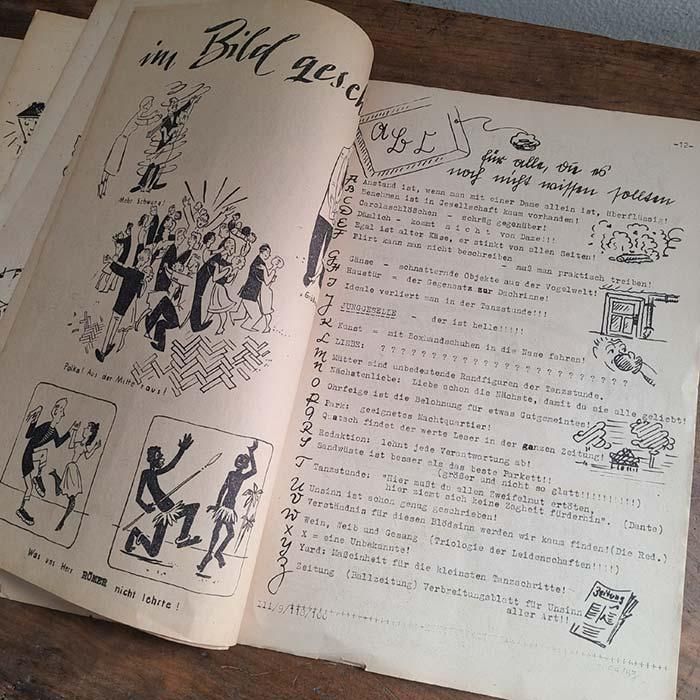 im Bild gesch
Mehr Schwung!
Polka! Aus der Mitte raus!
Was uns Herr RÖMER nicht lehrte!
-12-
ABC
für alle, die es
noch nicht wissen sollten
A Anstand ist, wenn man mit einer Dame allein ist, überflüssig!
B Benehmen ist in Gesellschaft kaum vorhanden!
C Carolaschlößchen - schräg gegenüber!
D Dämlich - kommt nicht von Dame!!!
E Egal ist alter Käse, er stinkt von allen Seiten!
F Flirt kann man nicht beschreiben - muß man praktisch treiben!
G Gänse = schnatternde Objekte aus der Vogelwelt!
H Haustür = der Gegensatz zur Dachrinne!
I Ideale verliert man in der Tanzstunde!!!
J JUNGGESELLE - der ist helle!!!!!
K Kunst = mit Boxhandschuhen in die Nase fahren!
L LIEBE: ? ? ? ? ? ? ? ? ? ? ? ? ? ? ? ? ? ? ? ? ? ?
M Mütter sind unbedeutende Randfiguren der Tanzstunde.
N Nächstenliebe: Liebe schon die Nächste, damit du sie alle geliebt!
O Ohrfeige ist die Belohnung für etwas Gutgemeintes!
P Park: geeignetes Nachtquartier!
Q Quatsch findet der werte Leser in der ganzen Zeitung!
R Redaktion: lehnt jede Verantwortung ab!
S Sandwüste ist besser als das beste Parkett!!
(größer und nicht so glatt!!!!!!!!!!)
T Tanzstunde: "Hier mußt du allen Zweifelmut ertöten,
hier ziemt sich keine Zagheit fürderhin". (Dante)
U Unsinn ist schon genug geschrieben!
V Verständnis für diesen Blödsinn werden wir kaum finden!(Die Red.)
W Wein, Weib und Gesang (Triologie der Leidenschaften!!!!)
X x = eine Unbekannte!
Y Yard: Maßeinheit für die kleinsten Tanzschritte!
Z Zeitung (Ballzeitung) Verbreitungsblatt für Unsinn
aller Art!!
Zeitung